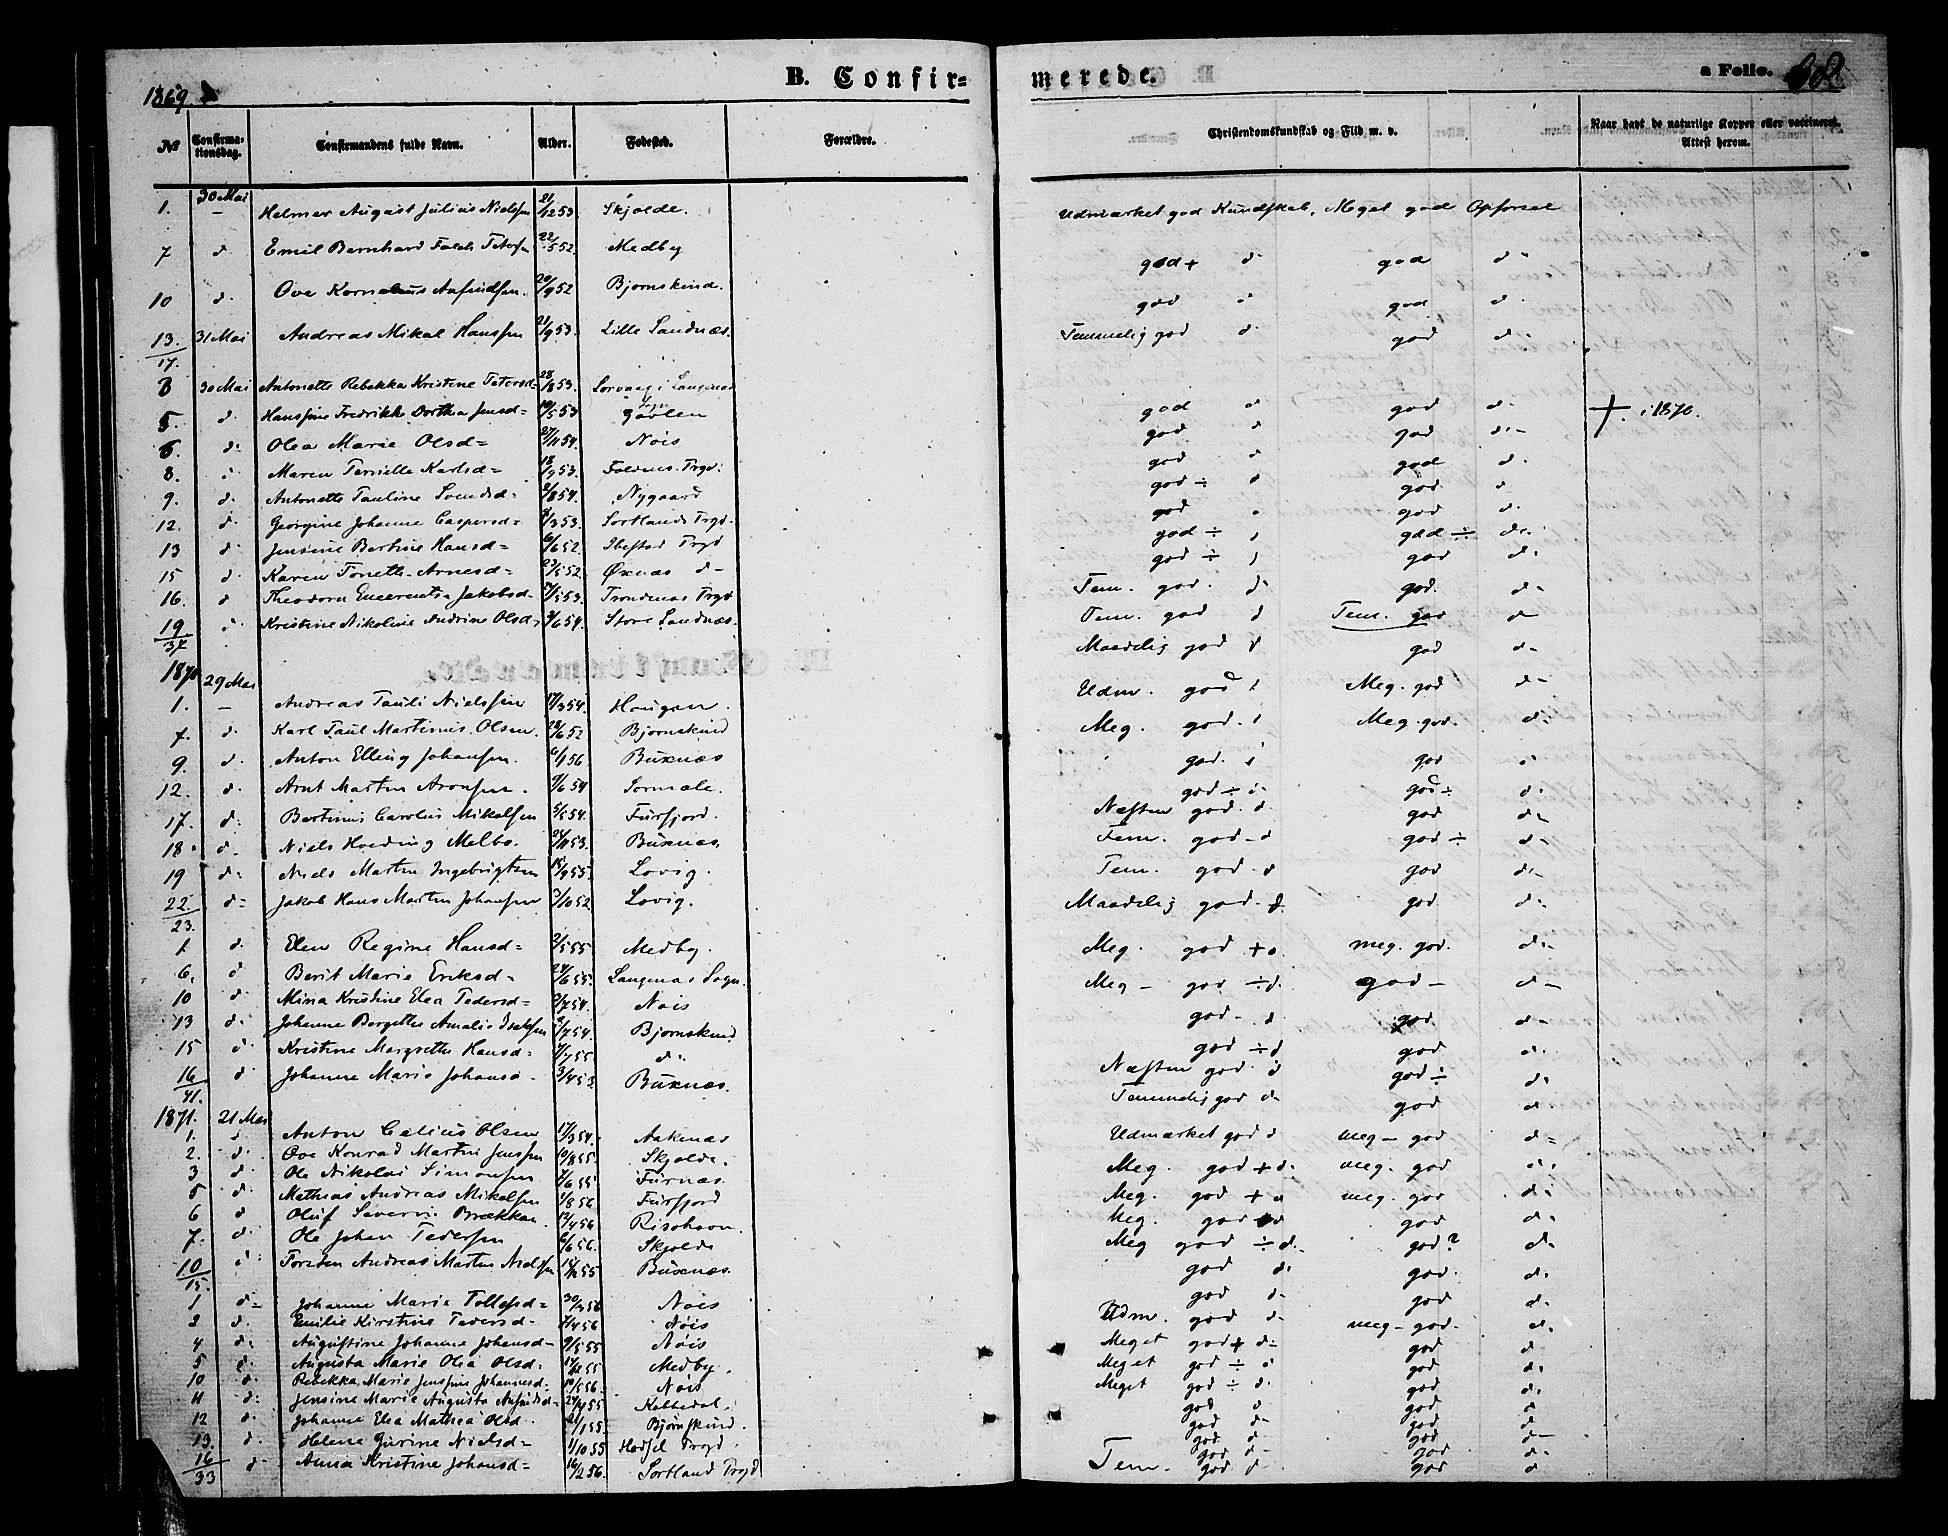 1869.
B. Confir-
merede.
a Folio. 38.
No
Confirma-
tionsdag.
Confirmandens fulde Navn.
Alder.
Fødested.
Forældre.
Christendomskundskab og Flid m. v.
Naar havt de naturlige Kopper eller vaccineret.
Attest herom.
1. 30 Mai Helmer August Julius Nielsen 21/12 53 Skjolde. Udmærket god Kundskab, Meget god Opførsel
7 d. Emil Bernhard Falch Petersen 22/5 52. Medby god + d. god d.
10 d. Ove Kornelius Anfindsen. 20/9 52 Bjørnskind. god d. god d.
13. 31 Mai Andreas Mikal Hanssen 21/9 53. Lille Sandnæs. Temmelig god d. god d.
17.
3 30 Mai Antonette Rebekka Kristine Petersd= 28/8 53. Sørvaag i Langenæs Sogn god d. god d. + i 1870.
5. d. Hanssine Fredrikke Dorthea Jensd= 10/5 53 Gavlen god d. god d.
6. d. Olea Marie Olsd= 27/11 54. Nøis god d. god d.
8. d. Maren Pernille Karlsd= 18/9 53. Foldens Prgd. god ÷ d god d
9. d. Antonette Pauline Svendsd= 2/8 54. Nygaard god god d.
12. d. Georgine Johanne Caspersd= 3/3 53. Sortlands Prgd. god ÷ god ÷ d.
13 d. Jensine Bertine Hansd= 6/6 52. Ibestad Prgd god ÷ god d.
15 d. Karen Tonette Arnesd= 23/5 52 Øxnæs d- Tem. god. d. god. d.
16. d Theodora Emerentse Jakobsd= 27/5 53. Trondenæs Prgd Tem. god d Tem. god d
19 d. Kristine Nikoline Andrine Olsd= 3/6 54. Store Sandnæs. Maadelig god d god d.
37
1870 29 Mai
1. - Andreas Pauli Nielssen 17/3 54. Haugen. Udm. god Meg. god d.
7. d. Karl Paul Martinus Olsen. 28/6 52 Bjørnskind Meg. god. Meg. god. d.
9. d. Anton Elling Johansen. 6/1 56 Buxnæs god. god d
12. d. Arnt Martin Aronsen. 9/6 54 Sørmæle. god ÷ d. god ÷ d.
17. d. Bertinus Carolus Mikalsen 5/5 54. Fursfjord. Næsten god. d. god d.
18. d. Niels Hveding Melbo. 24/11 53. Buxnæs. Tem. god - d god ÷ d.
19 d. Niels Martin Ingebrigtsen 15/9 55. Lovig. Tem. god d god d.
22. d= Jakob Hans Martin Johansen 3/10 52. Lovig. Maadelig god d. god d.
23.
1. d. Elen Regine Hansd= 2/5 55 Medby. Meg. god + d. meg. god. d.
6. d Berit Marie Eriksd= 24/6 55. Langenæs Sogn. Meg - god ÷ d. god - d-
10 d. Mina Kristine Elea Pedersd= 2/7 54. Nøis god - d god d-
13 d. Johanne Bergitte Amalie Isaksen 3/7 54. Bjørnskind god ÷ d god d.
15 d. Kristine Margrethe Hansd= 7/7 55 d. Næsten god. d god ÷ d.
16 d. Johanne Marie Johansd- 3/4 53. Buxnæs. Temmelig god d. god d
41.
1871. 21 Mai
1. d. Anton Celius Olsen 17/3 54. Aakenæs Udmærket god d meg - god d=
2. d. Ove Konrad Martin Jenssen 10/8 55. Skjolde. Meg. god + d. meg. god d.
3 d. Ole Nikolai Simonsen 7/6 55 Furnæs. Meg. god + d meg. god d.
5 d. Mathias Andreas Mikalsen 1/8 56 Fursfjord Meg. god d god d.
6 d Oluf Severin Brækkan 12/4 56 Risøhavn. Meg god ÷ d. god? d.
7. d. Ole Johan Pedersen 6/6 56. Skjolde god d. god. d.
10 d. Torsten Andreas Martin Nielsen 15/12 55 Buxnæs. god d. god d.
15.
1 d= Johanne Marie Tollefsd= 30/3 56 Nøis Udm. god d meg - god. d.
2 d. Emilie Kirstine Pedersd= 7/4 56 Nøis Meget god + d. god d
4 d. Augustine Johanne Johansd= 9/5 55 Nøis Meget god ÷ d god d.
5 d. Augusta Marie Olea Olsd. 17/12 55 Medby. Meget god ÷ d. god d.
10 d. Rebekka Marie Jenssine Johannesd= 10/5 56. Nøis god d god d.
11 d. Jensine Marie Augusta Anfindsd= 24/4 55 Kobbedal. god d- god d-
12 d. Johanne Elea Mathea Olsd. 21/1 55 Bjørnskind. god d god d-
13. d. Helene Gurine Nielsd= 1/10 55 Hadsel Prgd. god d- god d.
16 d Anna Kristine Johansd= 16/2 56. Sortland Prgd Tem. god d. god d
33